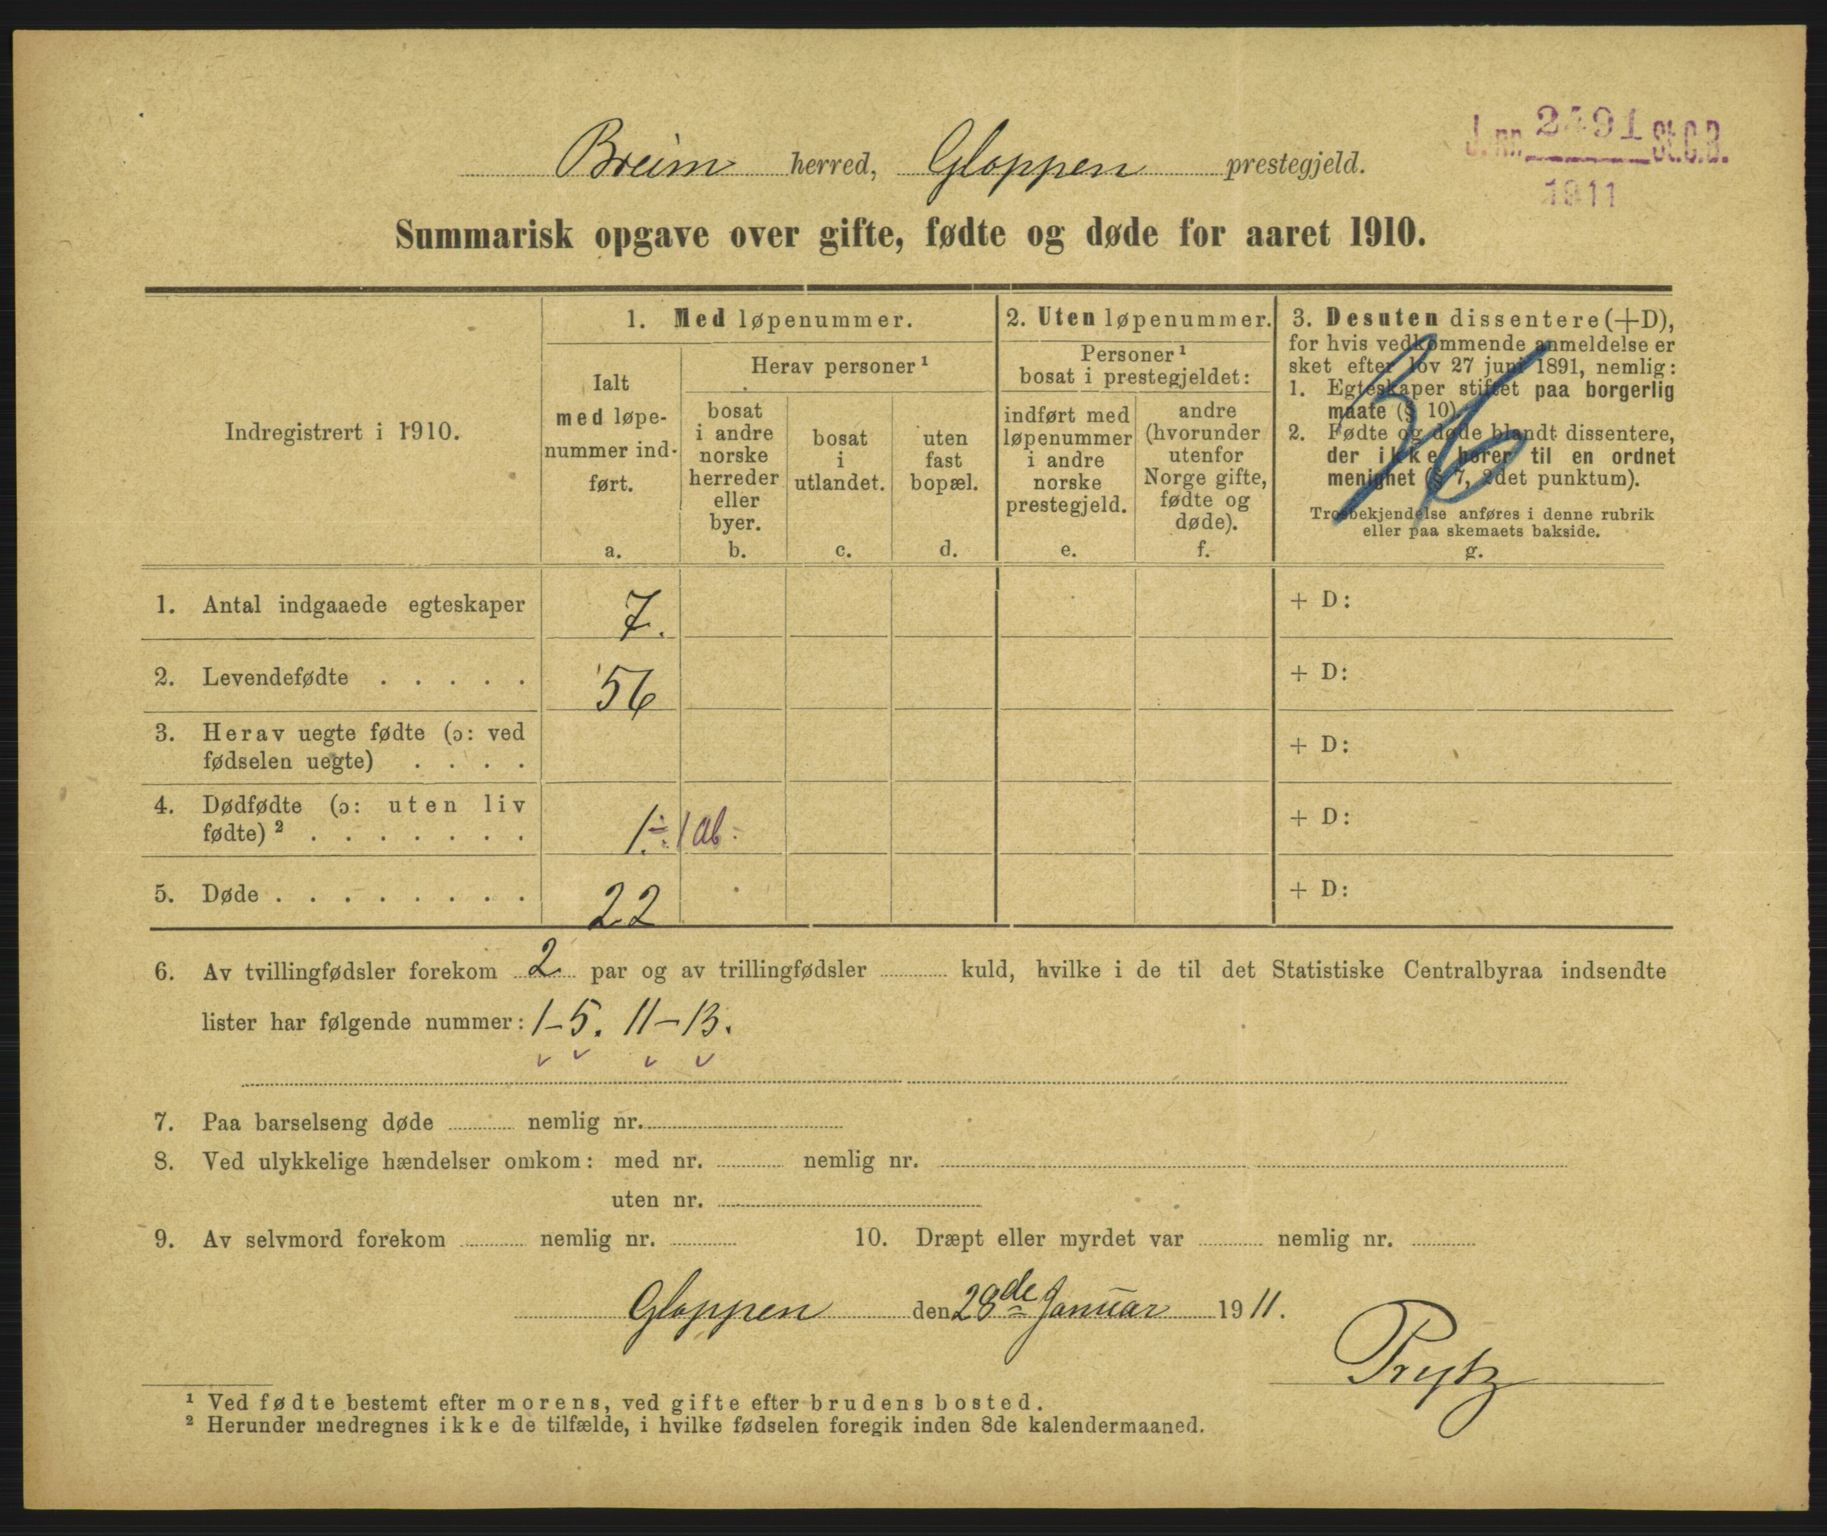 J. nr. 2491 St. C. B.
1911
Breim herred, Gloppen prestegjeld.
Summarisk opgave over gifte, fødte og døde for aaret 1910.
Indregistrert i 1910.
1. Med løpenummer.
Ialt
med løpe-
nummer ind-
ført.
a.
Herav personer ¹
bosat
i andre
norske
herreder
eller
byer.
b.
bosat
i
utlandet.
c.
uten
fast
bopæl.
d.
2. Uten løpenummer.
Personer ¹
bosat i prestegjeldet:
indført med
løpenummer
i andre
norske
prestegjeld.
e.
andre
(hvorunder
utenfor
Norge gifte,
fødte og
døde).
f.
3. Desuten dissentere (+D),
for hvis vedkommende anmeldelse er
sket efter lov 27 juni 1891, nemlig:
1. Egteskaper stiftet paa borgerlig
maate (§ 10).
2. Fødte og døde blandt dissentere,
der ikke hører til en ordnet
menighet (§ 7, 2det punktum).
Trosbekjendelse anføres i denne rubrik
eller paa skemaets bakside.
g.
36
1. Antal indgaaede egteskaper 7. + D:
2. Levendefødte . . . . . 56 + D:
3. Herav uegte fødte (ɔ: ved
fødselen uegte) . . . . + D:
4. Dødfødte (ɔ: uten liv
fødte) ² . . . . . . . 1. ÷ 1 ab. + D:
5. Døde . . . . . . . . 22 + D:
6. Av tvillingfødsler forekom 2 par og av trillingfødsler kuld, hvilke i de til det Statistiske Centralbyraa indsendte
lister har følgende nummer: 1-5. 11-13.
7. Paa barselseng døde nemlig nr.
8. Ved ulykkelige hændelser omkom: med nr. nemlig nr.
uten nr.
9. Av selvmord forekom nemlig nr. 10. Dræpt eller myrdet var nemlig nr.
Gloppen den 28de Januar 1911.
Prytz
¹ Ved fødte bestemt efter morens, ved gifte efter brudens bosted.
² Herunder medregnes ikke de tilfælde, i hvilke fødselen foregik inden 8de kalendermaaned.